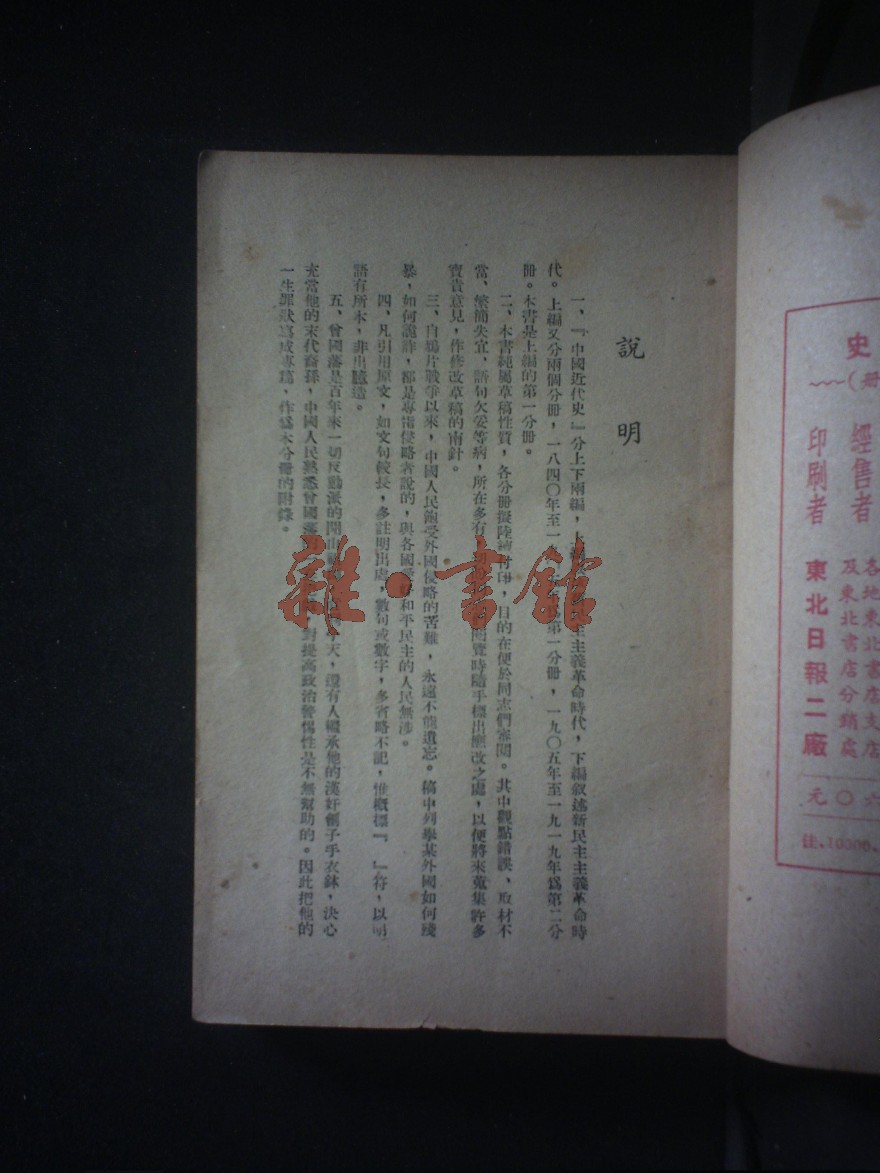 說明
一、『中國近代史』分上下兩編，上 主主義革命時代，下編叙述新民主主義革命時
代。上編又分兩個分冊，一八四〇年至一 第一分冊，一九〇五年至一九一九年爲第二分
冊。本書是上編的第一分冊。
二、本書純屬草稿性質，各分冊擬陸續付印，目的在便於同志們審閱。其中觀點錯誤、取材不
當、繁簡失宜、語句欠妥等病，所在多有 閱覽時隨手標出應改之處，以便將來蒐集許多
寶貴意見，作修改草稿的南針。
三、自鴉片戰爭以來，中國人民飽受外國侵略的苦難，永遠不能遺忘。稿中列舉某外國如何殘
暴，如何詭詐，都是專指侵略者說的，與各國愛好和平民主的人民無涉。
四、凡引用原文，如文句較長，多註明出處，數句或數字，多省略不記，惟概標『 』符，以明
語有所本，非出臆造。
五、曾國藩是百年來一切反動派的開山 天，還有人繼承他的漢奸劊子手衣鉢，決心
充當他的末代裔孫，中國人民熟悉曾國藩 對提高政治警惕性是不無幫助的。因此把他的
一生罪狀寫成專篇，作爲本分冊的附錄。
雜·書館
史
冊）
經售者
各地東北書店支店
及東北書店分銷處
印刷者
東北日報二廠
元〇六
佳.10000.